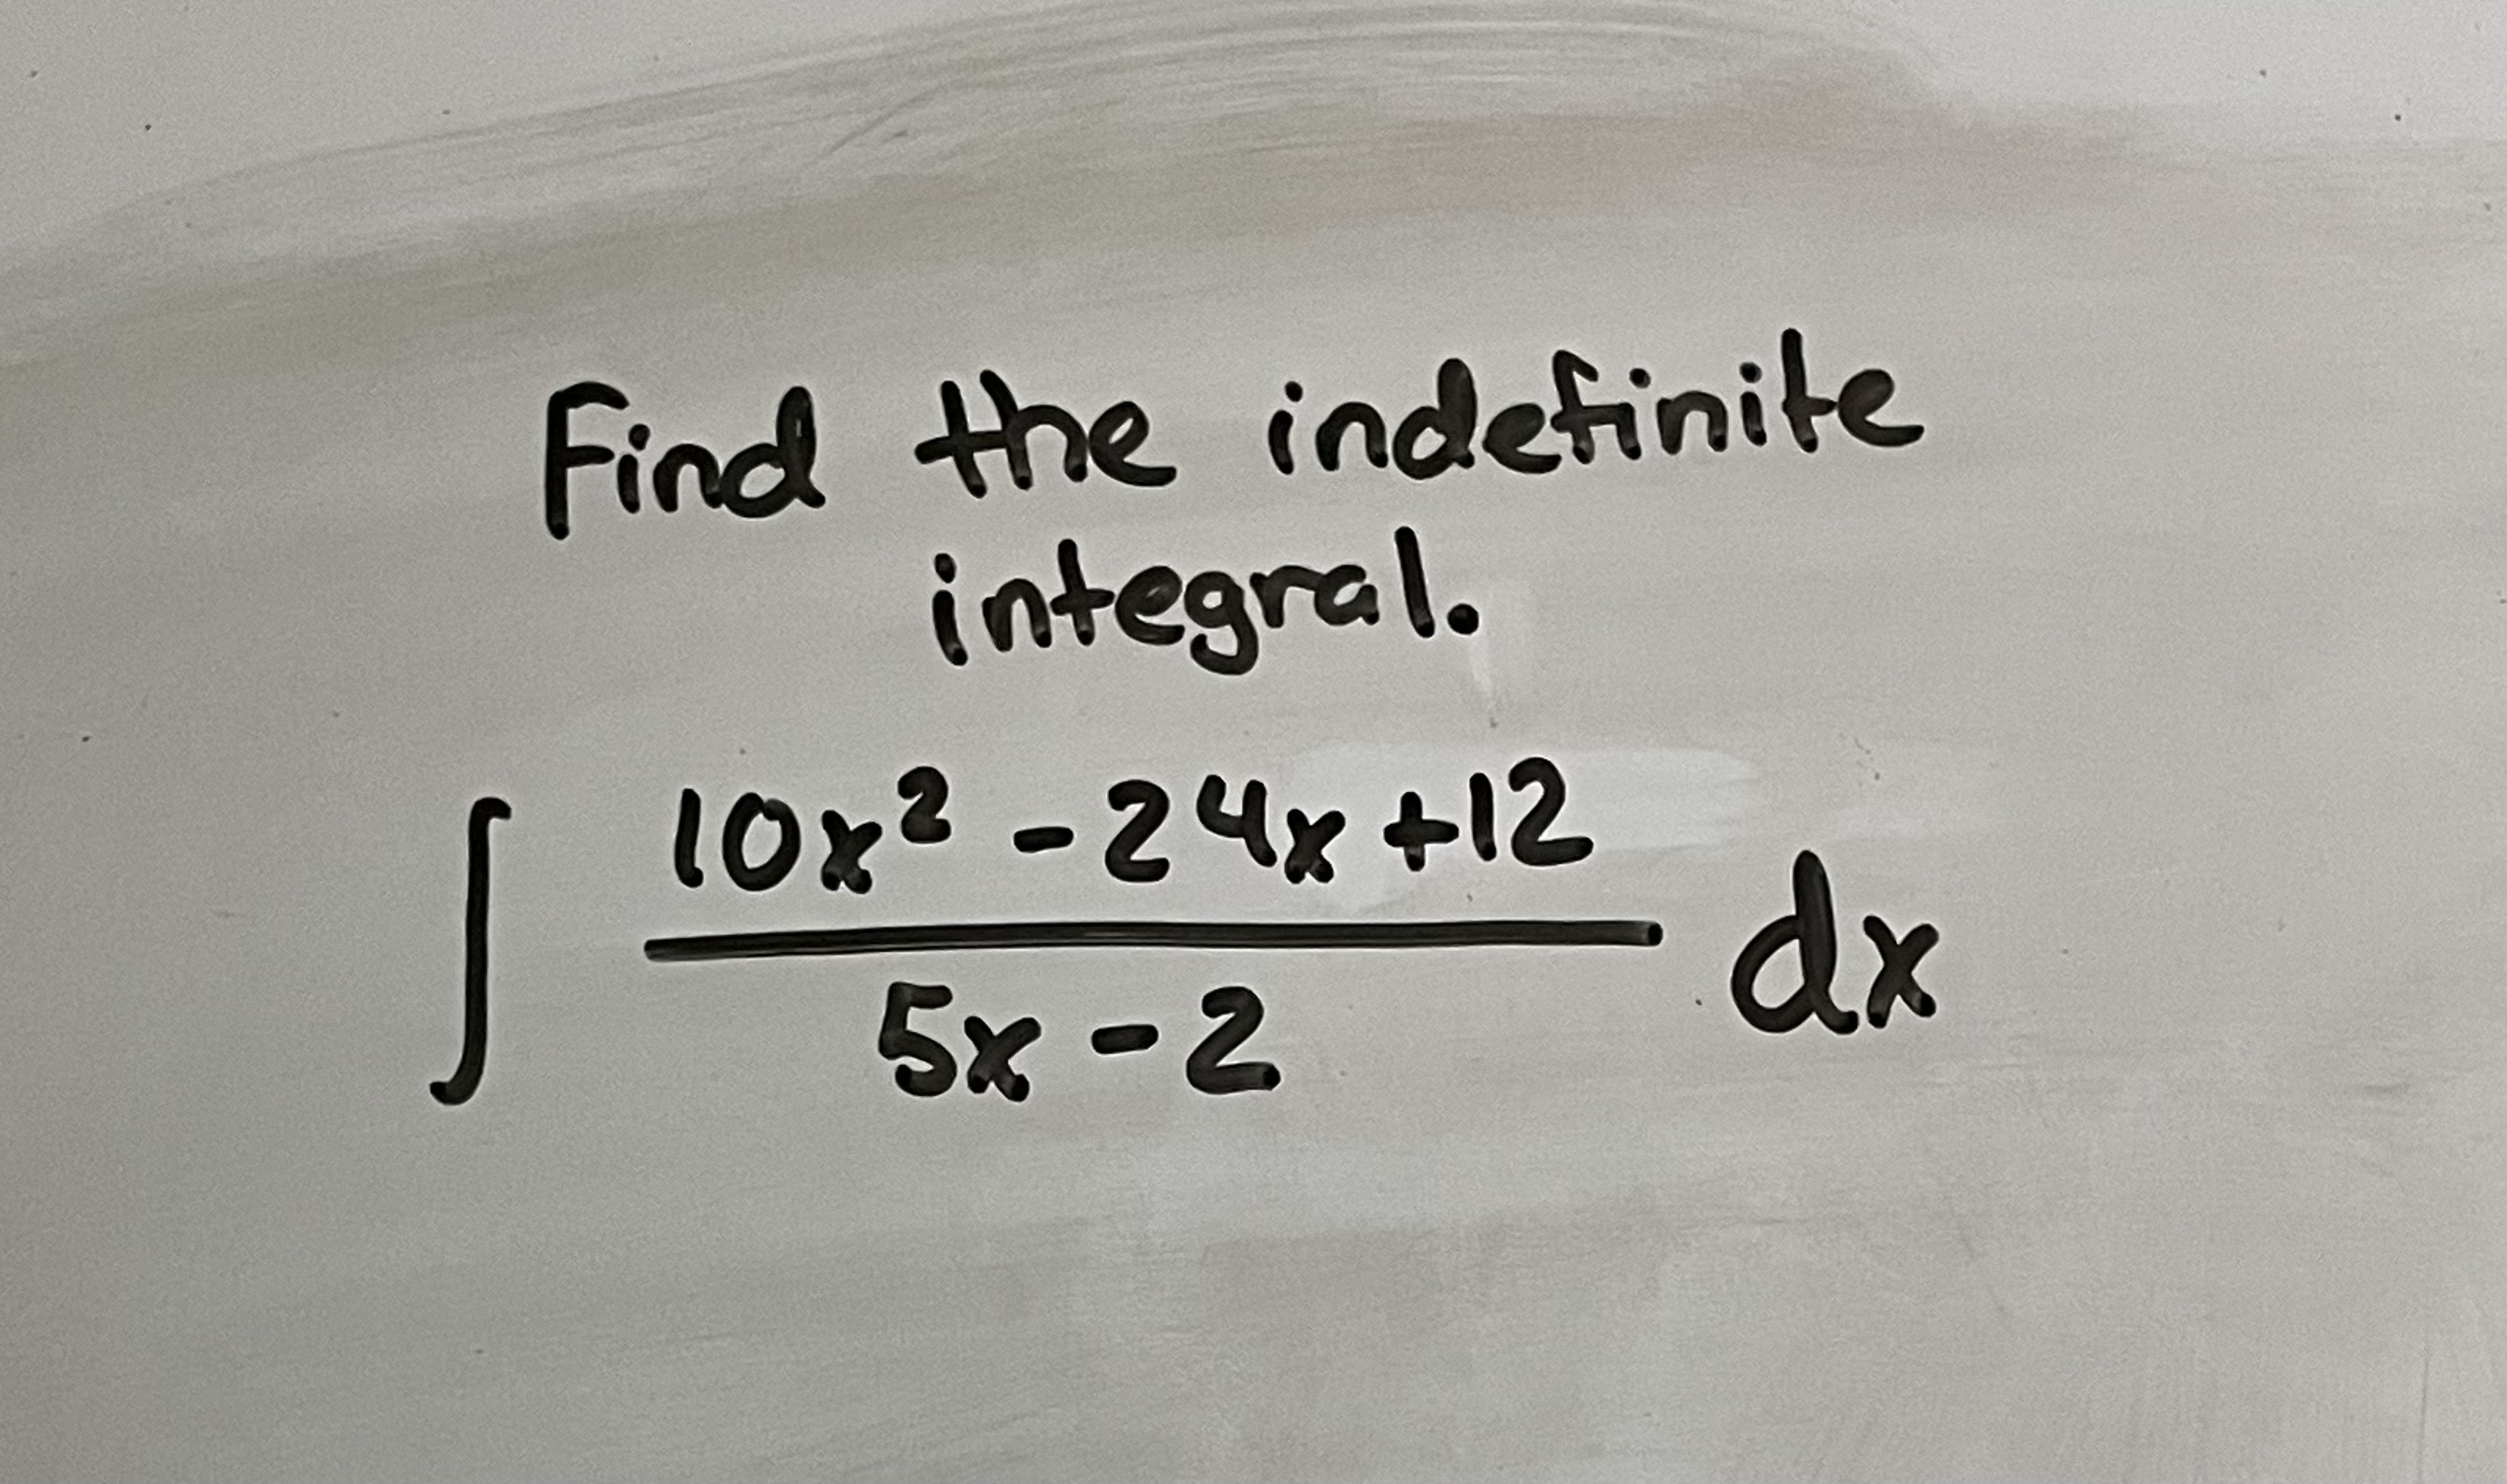 Find the indefinite
integral.
∫ (10x² - 24x + 12)/(5x - 2) dx